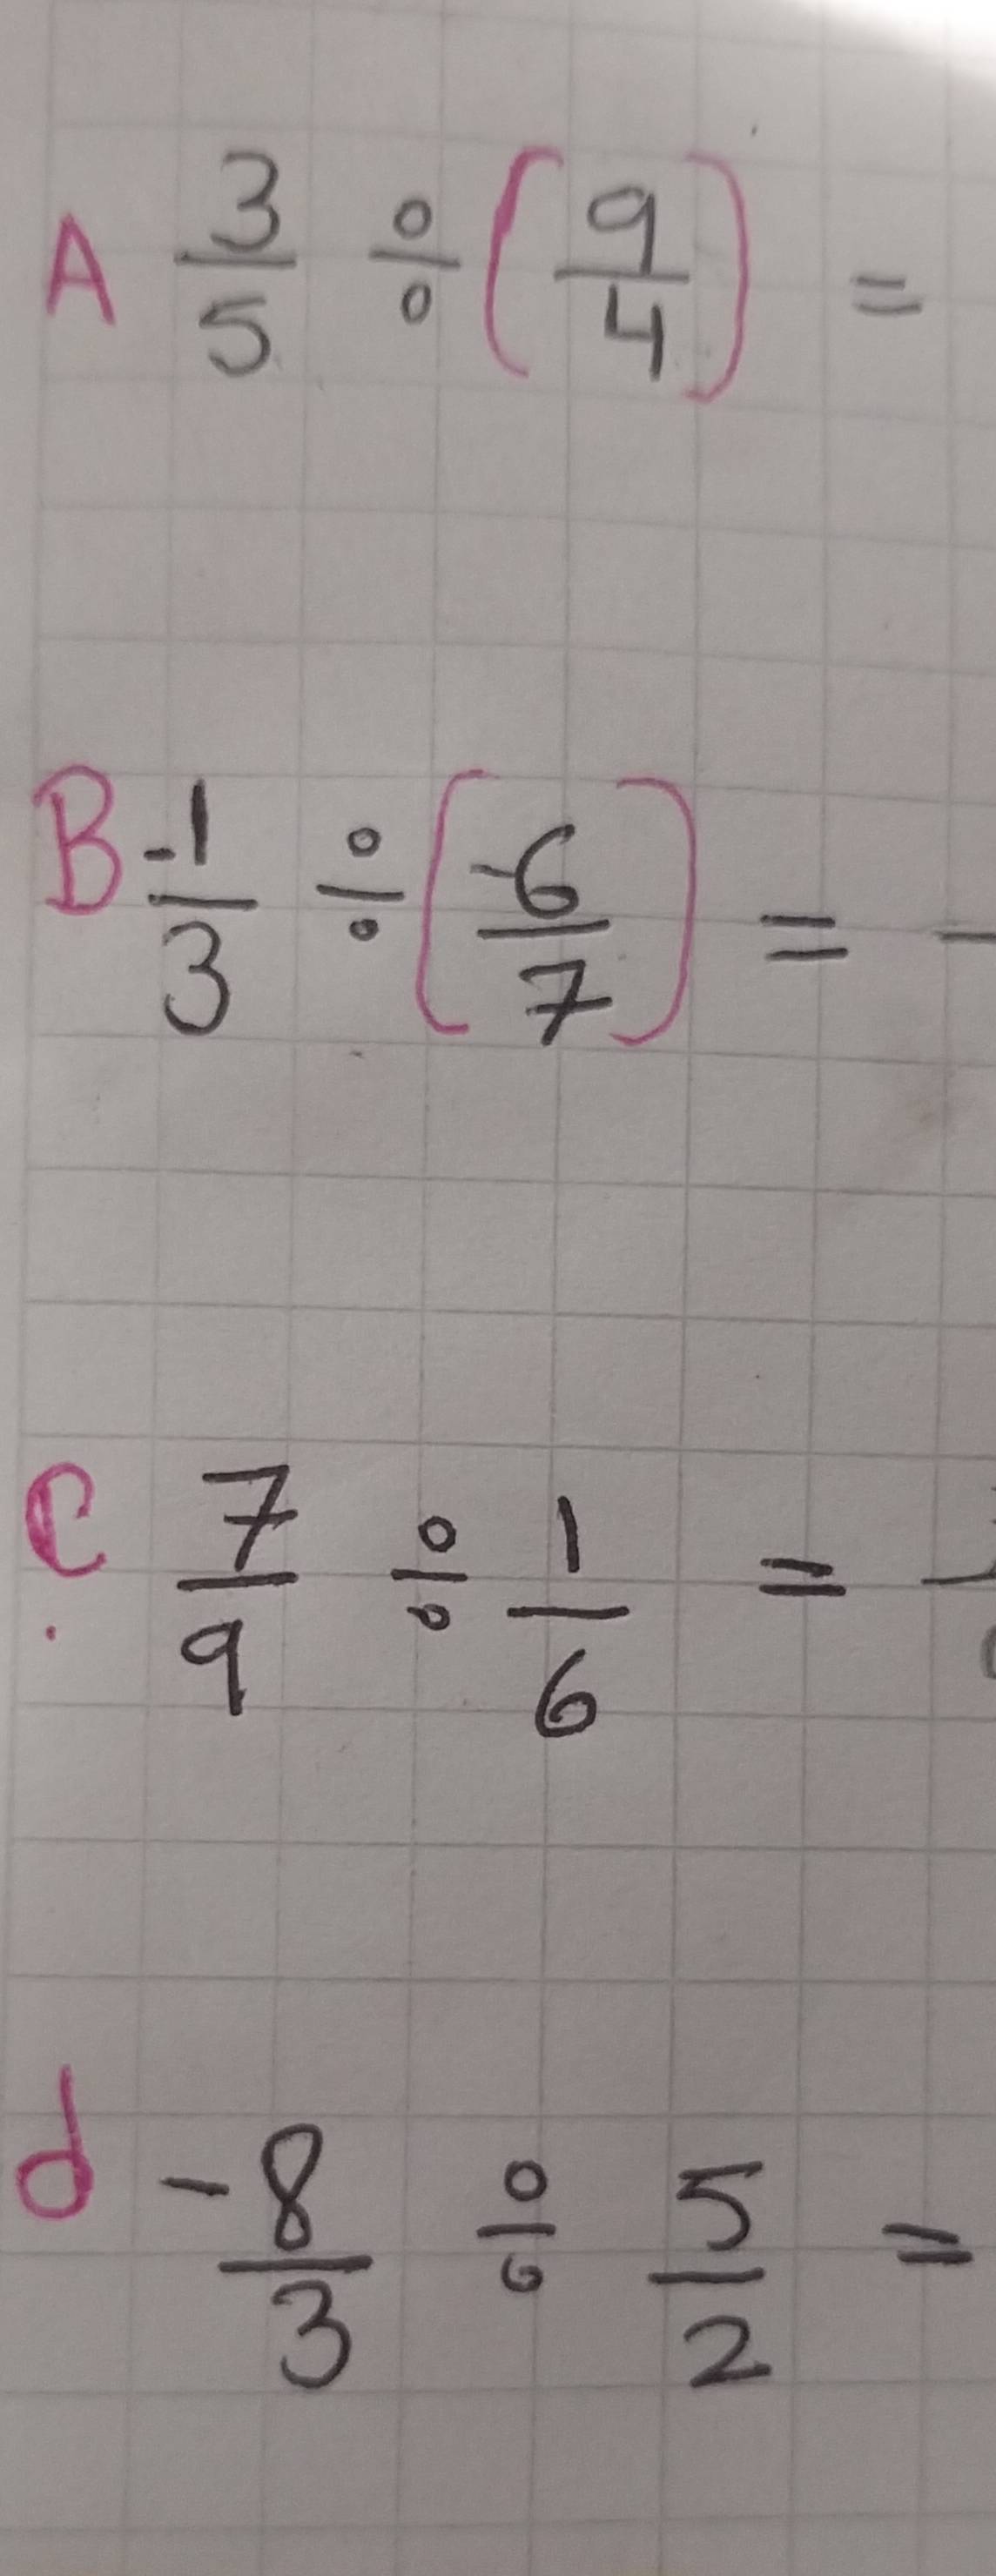 A 3/5 ÷ (9/4) =
B -1/3 ÷ (-6/7) =
C. 7/9 ÷ 1/6 =
d -8/3 ÷ 5/2 =